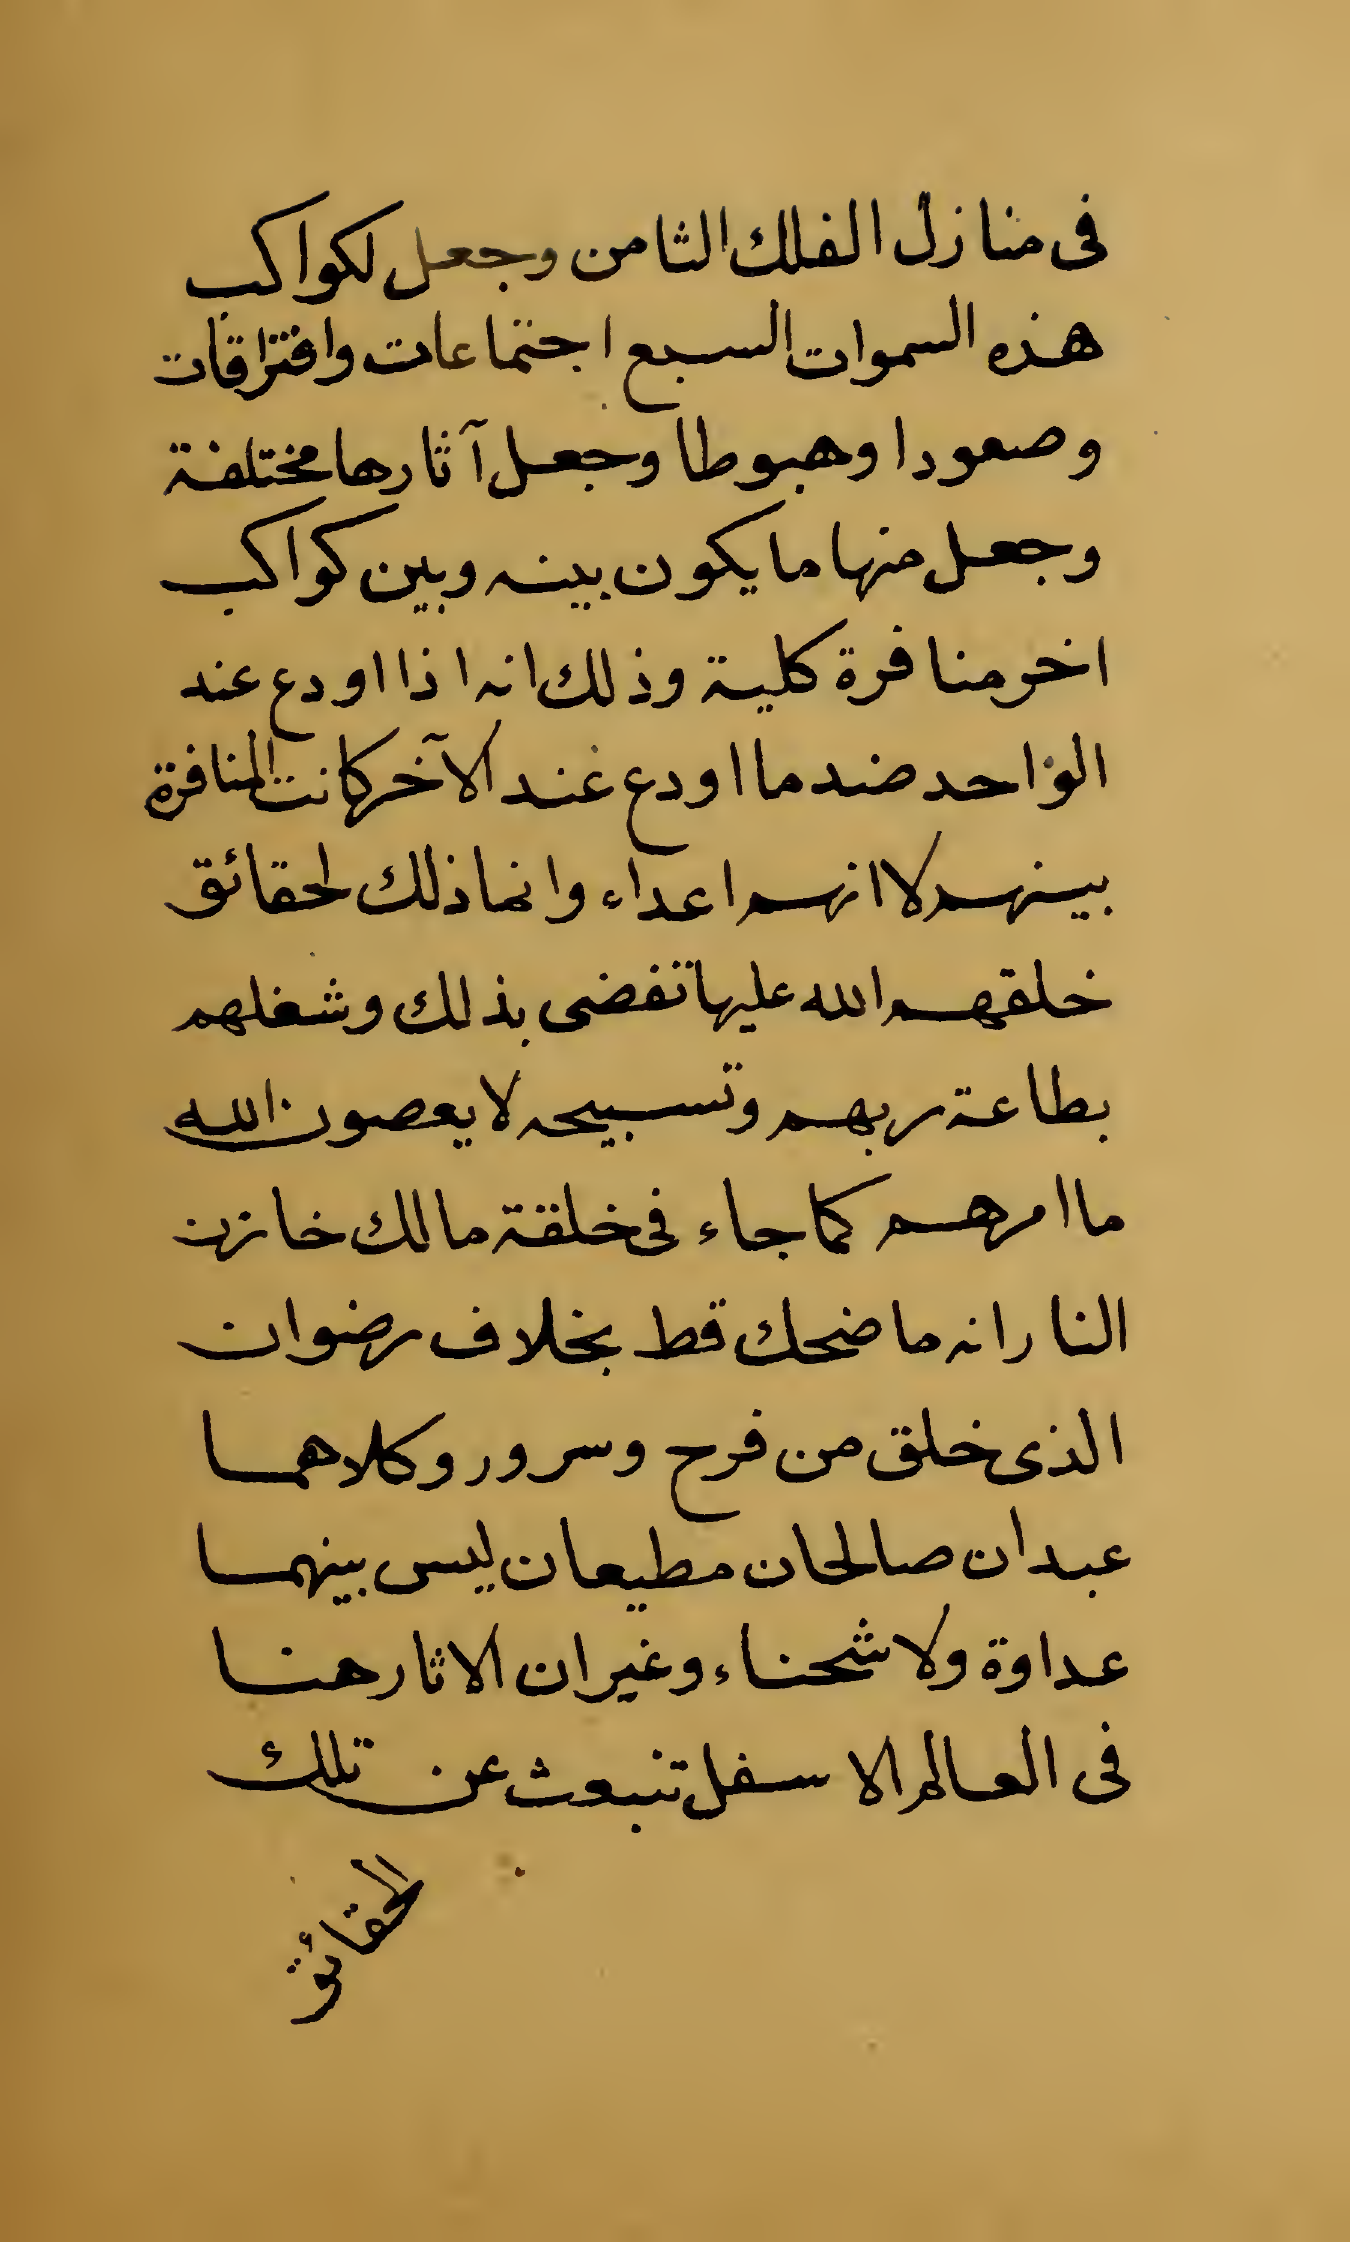 فى منازل الفلك الثامن وجعل لكواكب
هذه السموات السبع اجتماعات وافتراقات
وصعودا وهبوطا وجعل آثارها مختلفة
وجعل منها ما يكون بينه وبين كواكب
اخر منافرة كلية وذلك انه اذا اودع عند
الواحد ضد ما اودع عند الآخر كانت المنافرة
بينهم لا انهم اعداء وانما ذلك لحقائق
خلقهم الله عليها تفضى بذلك وشغلهم
بطاعة ربهم وتسبيحه لا يعصون الله
ما امرهم كما جاء فى خلقة مالك خازن
النار انه ما ضحك قط بخلاف رضوان
الذى خلق من فرح وسرور وكلاهما
عبدان صالحان مطيعان ليس بينهما
عداوة ولا شحناء وغير ان الاثار هنا
فى العالم الاسفل تنبعث عن تلك
الحقائق